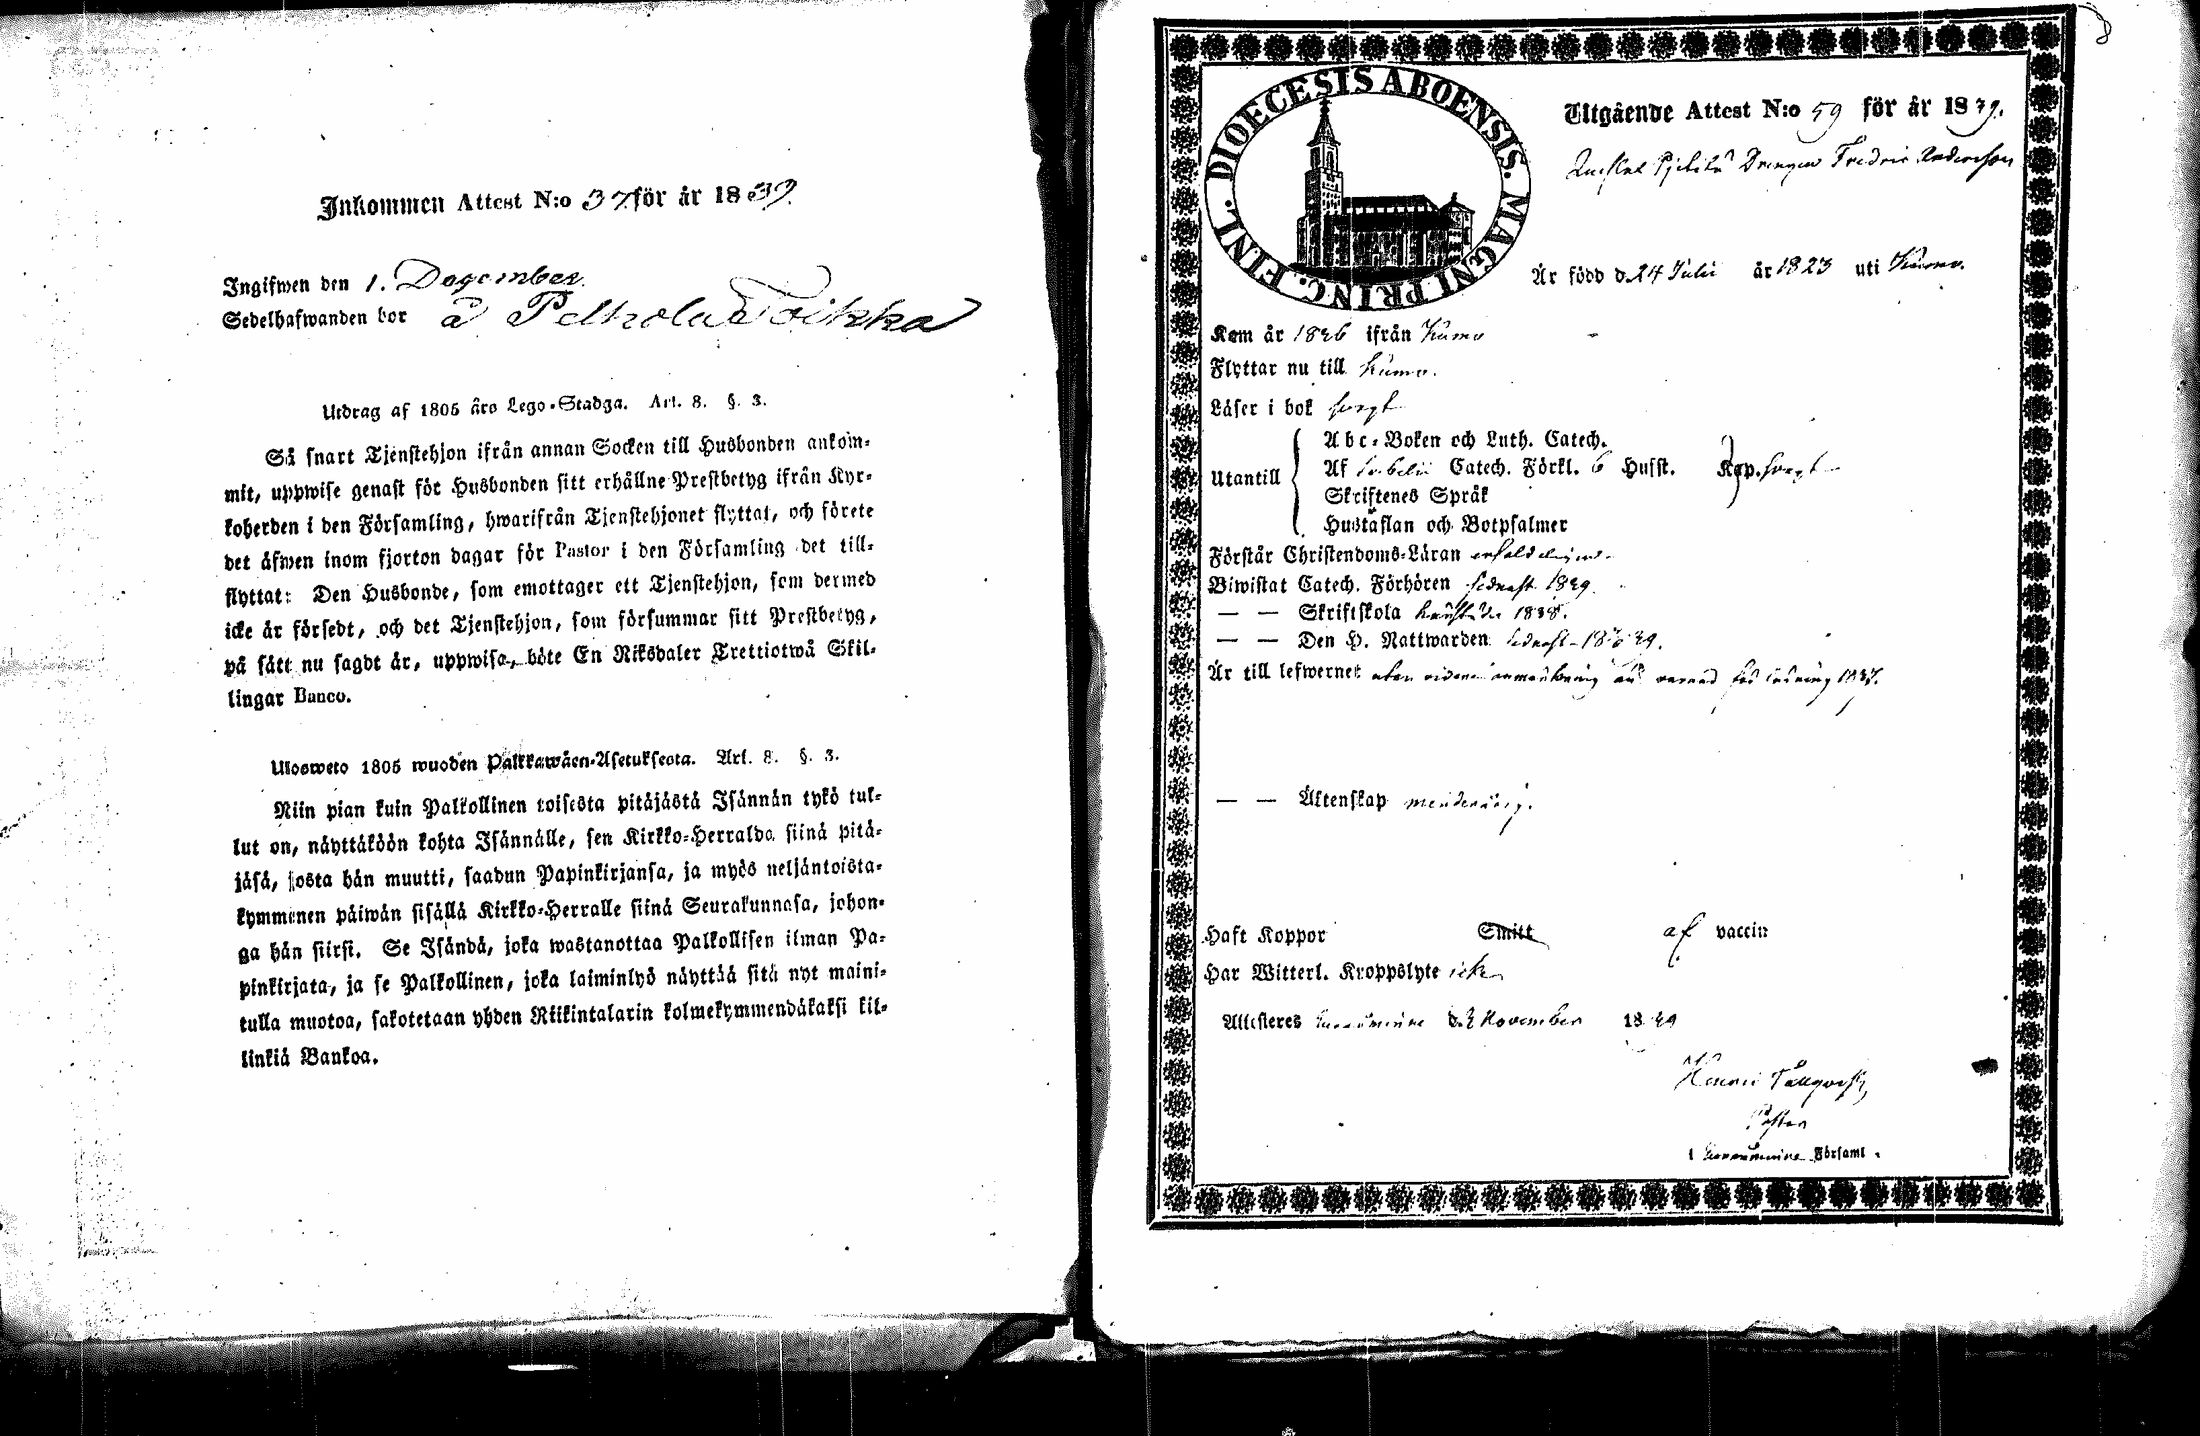 Inkommen Attest N:o 37 för år 1839.
Ingifwen den 1. December.
Sedelhafwanden bor å Pelhola Toikka
Utdrag af 1805 års Lego-Stadga. Art. 8. §. 3.
Så snart Tjenstehjon ifrån annan Socken till Husbonden ankom-
mit, uppwise genast för Husbonden sitt erhållne Prestbetyg ifrån Kyr-
koherden i den Församling, hwarifrån Tjenstehjonet flyttat, och förete
det äfwen inom fjorton dagar för Pastor i den Församling det till-
flyttat: Den Husbonde, som emottager ett Tjenstehjon, som dermed
icke är försedt, och det Tjenstehjon, som försummar sitt Prestbetyg,
på sätt nu sagdt är, uppwisa, böte En Riksdaler Trettiotwå Skil-
lingar Banco.
Ulosweto 1805 wuoden Palkkawäen-Asetuksesta. Art. 8. §. 3.
Niin pian kuin Palkollinen toisesta pitäjästä Isännän tykö tul-
lut on, näyttäköön kohta Isännälle, sen Kirkko-Herralda siinä pitä-
jäsä, josta hän muutti, saadun Papinkirjansa, ja myös neljäntoista-
kymmenen päiwän sisällä Kirkko-Herralle siinä Seurakunnasa, johon-
ga hän siirsi. Se Isändä, joka wastanottaa Palkollisen ilman Pa-
pinkirjata, ja se Palkollinen, joka laiminlyö näyttää sitä nyt maini-
tulla muotoa, sakotetaan yhden Riikintalarin kolmekymmendäkaksi kil-
linkiä Bankoa.
DIOECESIS ABOENSIS. MAGNI PRINC. FINL.
Utgående Attest N:o 59 för år 1839.
Drengen Fredric Andersson
Är född d. 24 Julii år 1823 uti Kumo.
Kom år 1836 ifrån Kumo
Flyttar nu till Kumo.
Läser i bok svagt
Utantill
Abc-Boken och Luth. Catech.
Af Catech. Förkl. 6 Husst. Kap. svagt
Skriftenes Språk
Hustaflan och Botpsalmer
Förstår Christendoms-Läran
Biwistat Catech. Förhören sednast 1839.
— — Skriftskola 1838.
— — Den H. Nattwarden sednast 39.
Är till lefwernet utan anmärkning
— — Äktenskap
Haft Koppor Smitt af vaccin
Har Witterl. Kroppslyte ick
Attesteres d. November 1839
Henric Tallqvist
Pastor
i Församl.